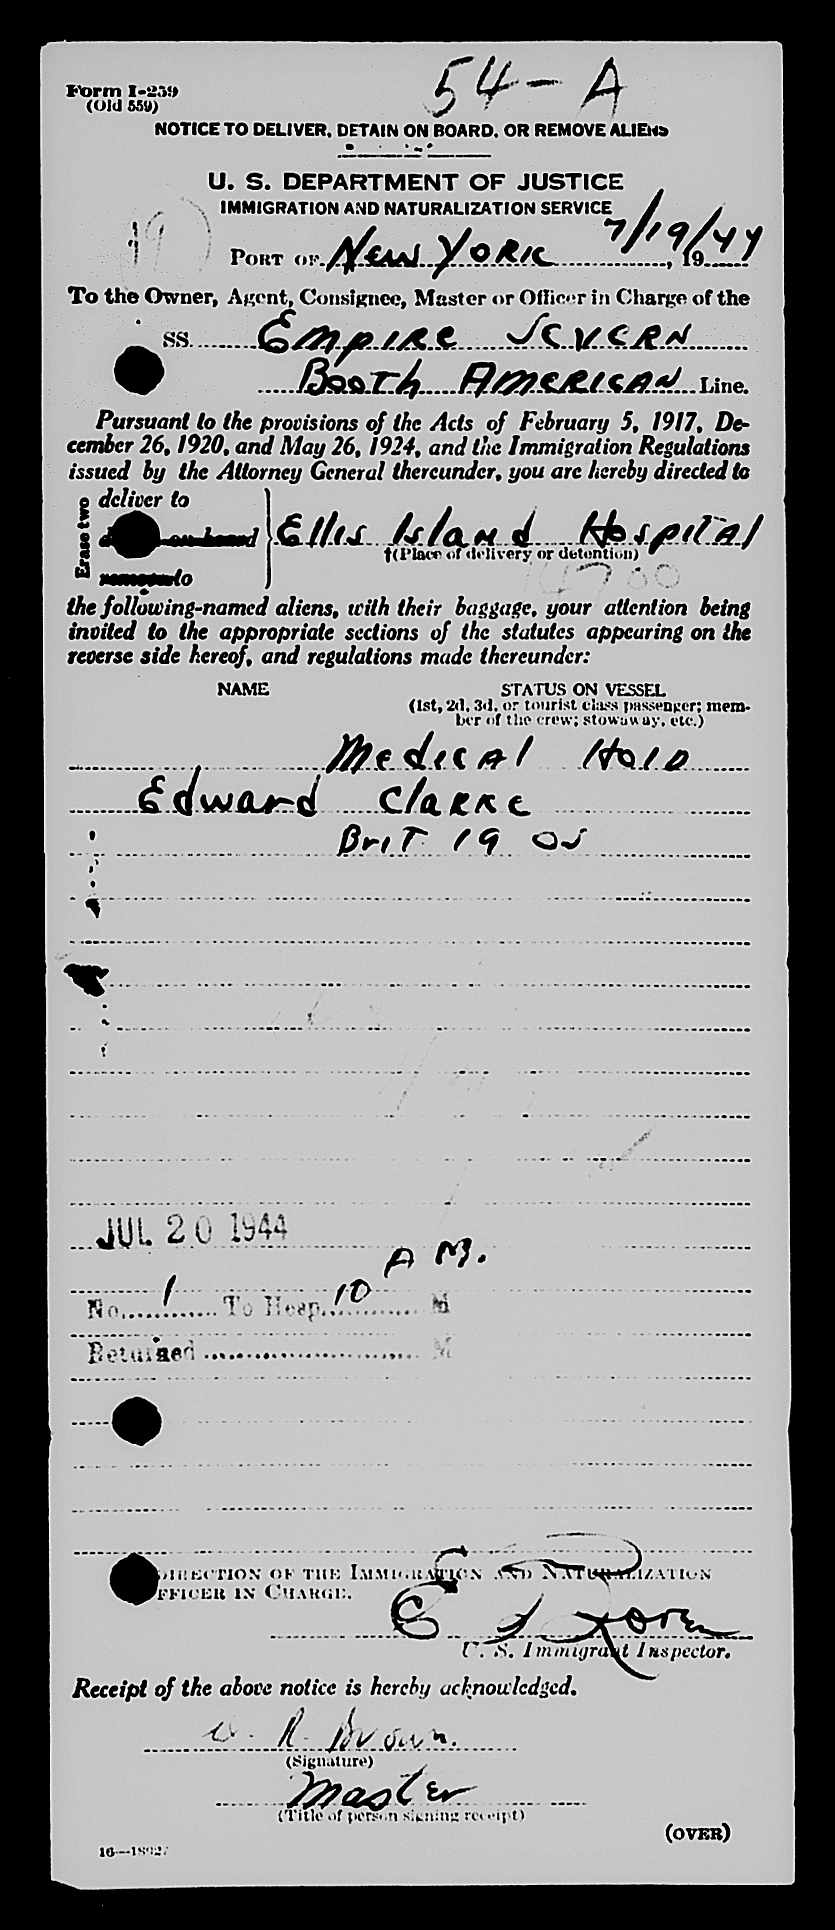 54-A
Form I-259
(Old 559)
NOTICE TO DELIVER, DETAIN ON BOARD, OR REMOVE ALIENS
U. S. DEPARTMENT OF JUSTICE
IMMIGRATION AND NATURALIZATION SERVICE
7/19/44
PORT OF New York, 19
To the Owner, Agent, Consignee, Master or Officer in Charge of the
SS. Empire Severn
Booth American Line.
Pursuant to the provisions of the Acts of February 5, 1917, De-
cember 26, 1920, and May 26, 1924, and the Immigration Regulations
issued by the Attorney General thereunder, you are hereby directed to
Erase two
deliver to
on board
to
Ellis Island Hospital
†(Place of delivery or detention)
the following-named aliens, with their baggage, your attention being
invited to the appropriate sections of the statutes appearing on the
reverse side hereof, and regulations made thereunder:
NAME STATUS ON VESSEL
(1st, 2d, 3d, or tourist class passenger; mem-
ber of the crew; stowaway, etc.)
Medical Hold
Edward Clarke
Brit 19 OS
JUL 20 1944
A M.
No. 1 To Hosp. 10 M
Returned M
DIRECTION OF THE IMMIGRATION AND NATURALIZATION
OFFICER IN CHARGE.
U. S. Immigrant Inspector.
Receipt of the above notice is hereby acknowledged.
R. Brown.
(Signature)
Master
(Title of person signing receipt)
(OVER)